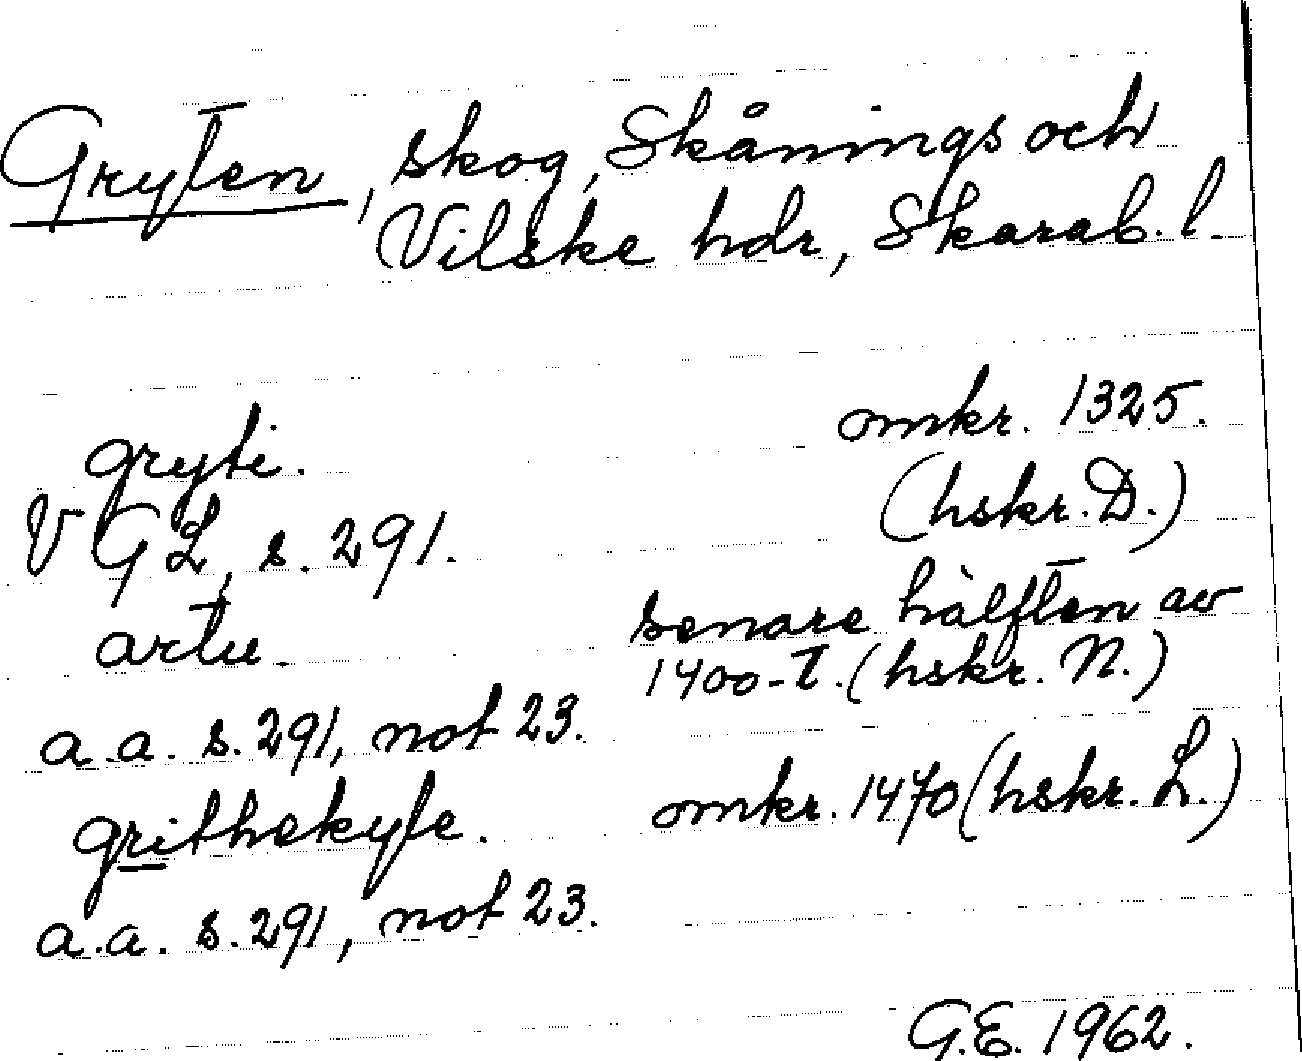 Gryten, skog, Skånings och
Vilske hdr, Skarab. l.
gryti. omkr. 1325.
VGL, s. 291. (hskr. D.)
artu. senare hälften av
1400-t. (hskr. N.)
a.a. s. 291, not 23.
grithekyle. omkr. 1470 (hskr. L.)
a.a. s. 291, not 23.
G.E. 1962.